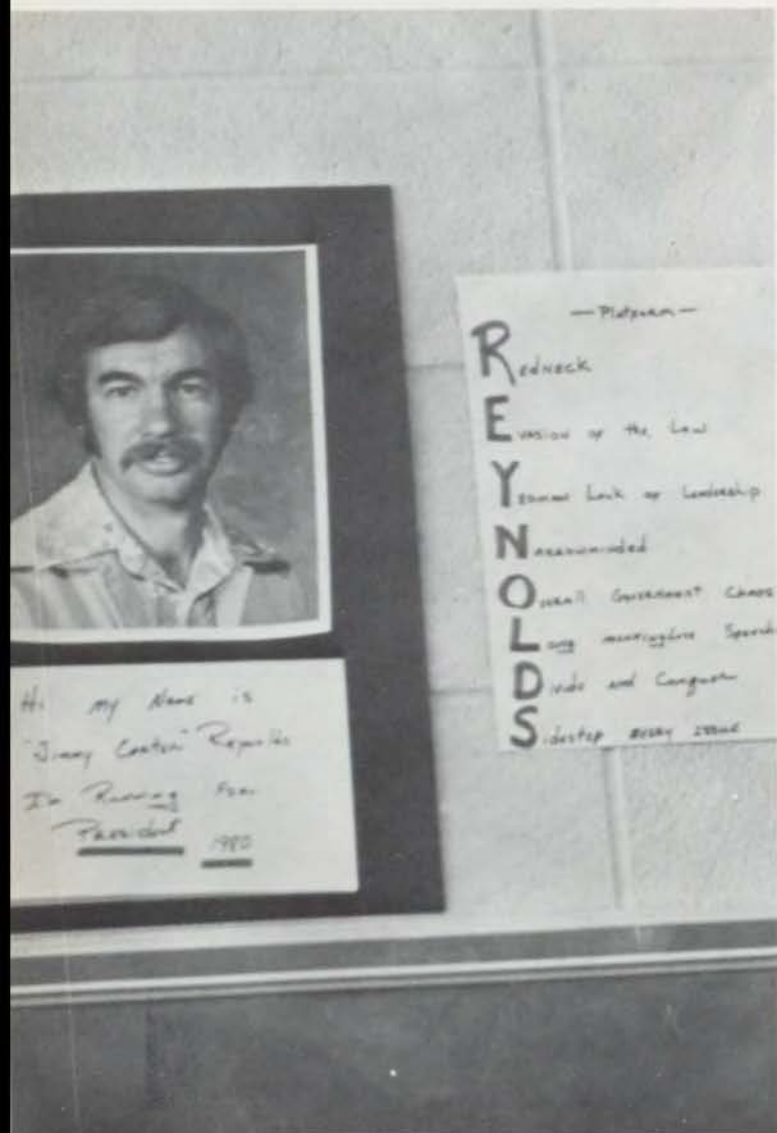 Hi my Name is
"Jimmy Carter" Reynolds
I'm Running For
President 1980
— Platform —
Redneck
Evasion of the Law
Lack of Leadership
Narrowminded
Overall Government Chaos
Long meaningless Speech
Divide and Conquer
Sidestep every issue